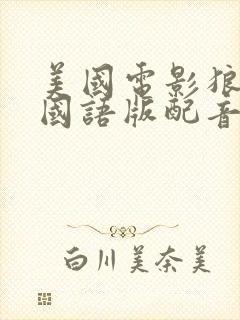 美國電影狼
國語版配音
白川美奈美